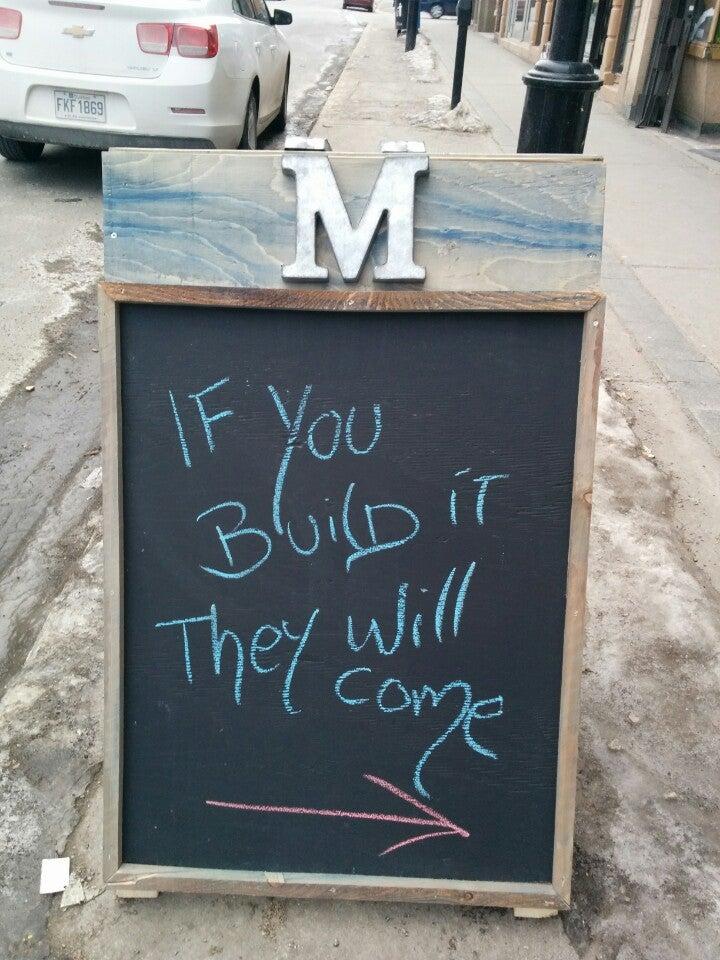 FKF 1869
M
IF You
BuilD iT
They will
come